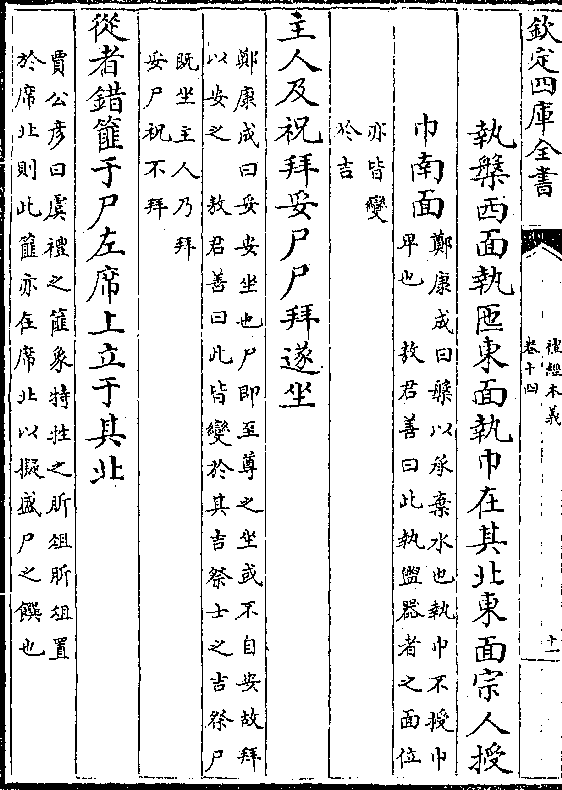 欽定四庫全書
禮經本義
卷十四
十一
執槃西面執匜東面執巾在其北東面宗人授
巾南面
鄭康成曰槃以承棄水也執巾不授巾
卑也　敖君善曰此執盥器者之面位
亦皆變
於吉
主人及祝拜妥尸尸拜遂坐
鄭康成曰妥安坐也尸即至尊之坐或不自安故拜
以安之　敖君善曰此皆變於其吉祭士之吉祭尸
既坐主人乃拜
妥尸祝不拜
從者錯篚于尸左席上立于其北
賈公彥曰虞禮之篚象特牲之肵俎肵俎置
於席北則此篚亦在席北以擬盛尸之饌也